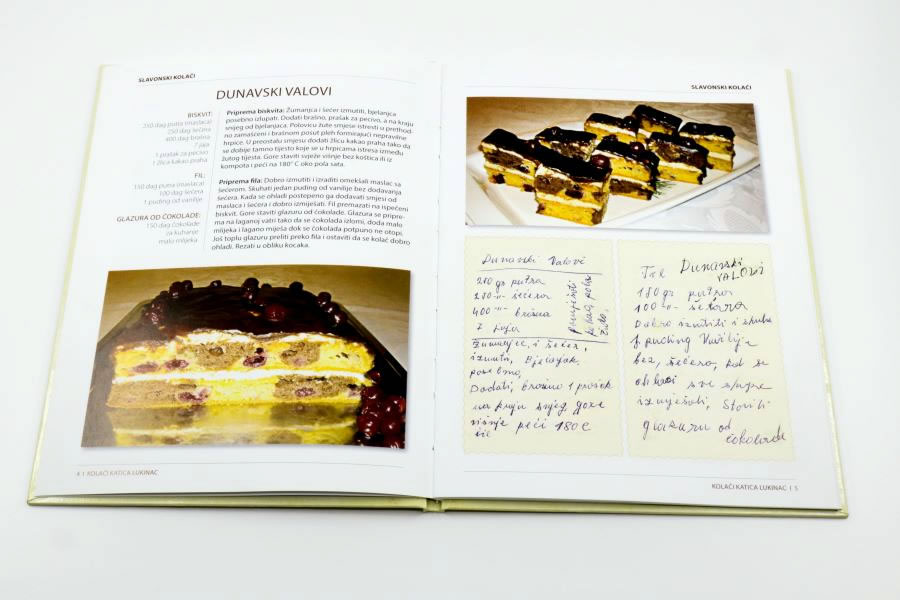 SLAVONSKI KOLAČI
DUNAVSKI VALOVI
BISKVIT:
250 dag putra (maslaca)
250 dag šećera
400 dag brašna
7 jaja
1 prašak za pecivo
1 žlica kakao praha
FIL:
150 dag putra (maslaca)
100 dag šećera
1 puding od vanilije
GLAZURA OD ČOKOLADE:
150 dag čokolade
za kuhanje
malo mlijeka
Priprema biskvita: Žumanjca i šećer izmutiti, bjelanjca
posebno izlupati. Dodati brašno, prašak za pecivo, a na kraju
snijeg od bjelanjaca. Polovicu žute smjese istresti u prethod-
no zamašćeni i brašnom posut pleh formirajući nepravilne
hrpice. U preostalu smjesu dodati žlicu kakao praha tako da
se dobije tamno tijesto koje se u hrpicama istresa između
žutog tijesta. Gore staviti svježe višnje bez koštica ili iz
kompota i peći na 180° C oko pola sata.
Priprema fila: Dobro izmutiti i izraditi omekšali maslac sa
šećerom. Skuhati jedan puding od vanilije bez dodavanja
šećera. Kada se ohladi postepeno ga dodavati smjesi od
maslaca i šećera i dobro izmiješati. Fil premazati na ispečeni
biskvit. Gore staviti glazuru od čokolade. Glazura se pripre-
ma na laganoj vatri tako da se čokolada izlomi, doda malo
mlijeka i lagano miješa dok se čokolada potpuno ne otopi.
Još toplu glazuru preliti preko fila i ostaviti da se kolač dobro
ohladi. Rezati u obliku kocaka.
4 I KOLAČI KATICA LUKINAC
SLAVONSKI KOLAČI
Dunavski Valovi
250 gr putra
250 -"- šećera
400 -"- brašna
7 jaja
Žumanjce, i šećer,
izmutit, Bjelanjak,
posebno,
Dodati, brašno 1 prašak
na kraju snjeg, gore
višnje peći 180 C
Fil
Fil Dunavski
VALOVI
150 gr putra
100 -"- šećera
Dobro izmutiti i skuha
1 puding Vanilije
bez, šećera, kad se
ohladi sve skupa
izmješati, Staviti
glazuru od
čokolade
KOLAČI KATICA LUKINAC I 5